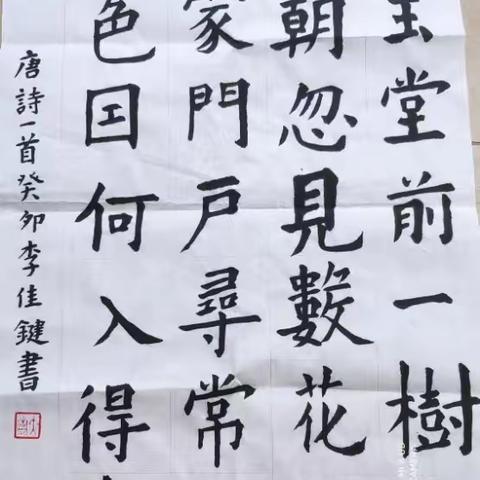 玉堂前一樹
朝忽見數花
家門戶尋常
色囙何入得
唐詩一首癸卯李佳鍵書